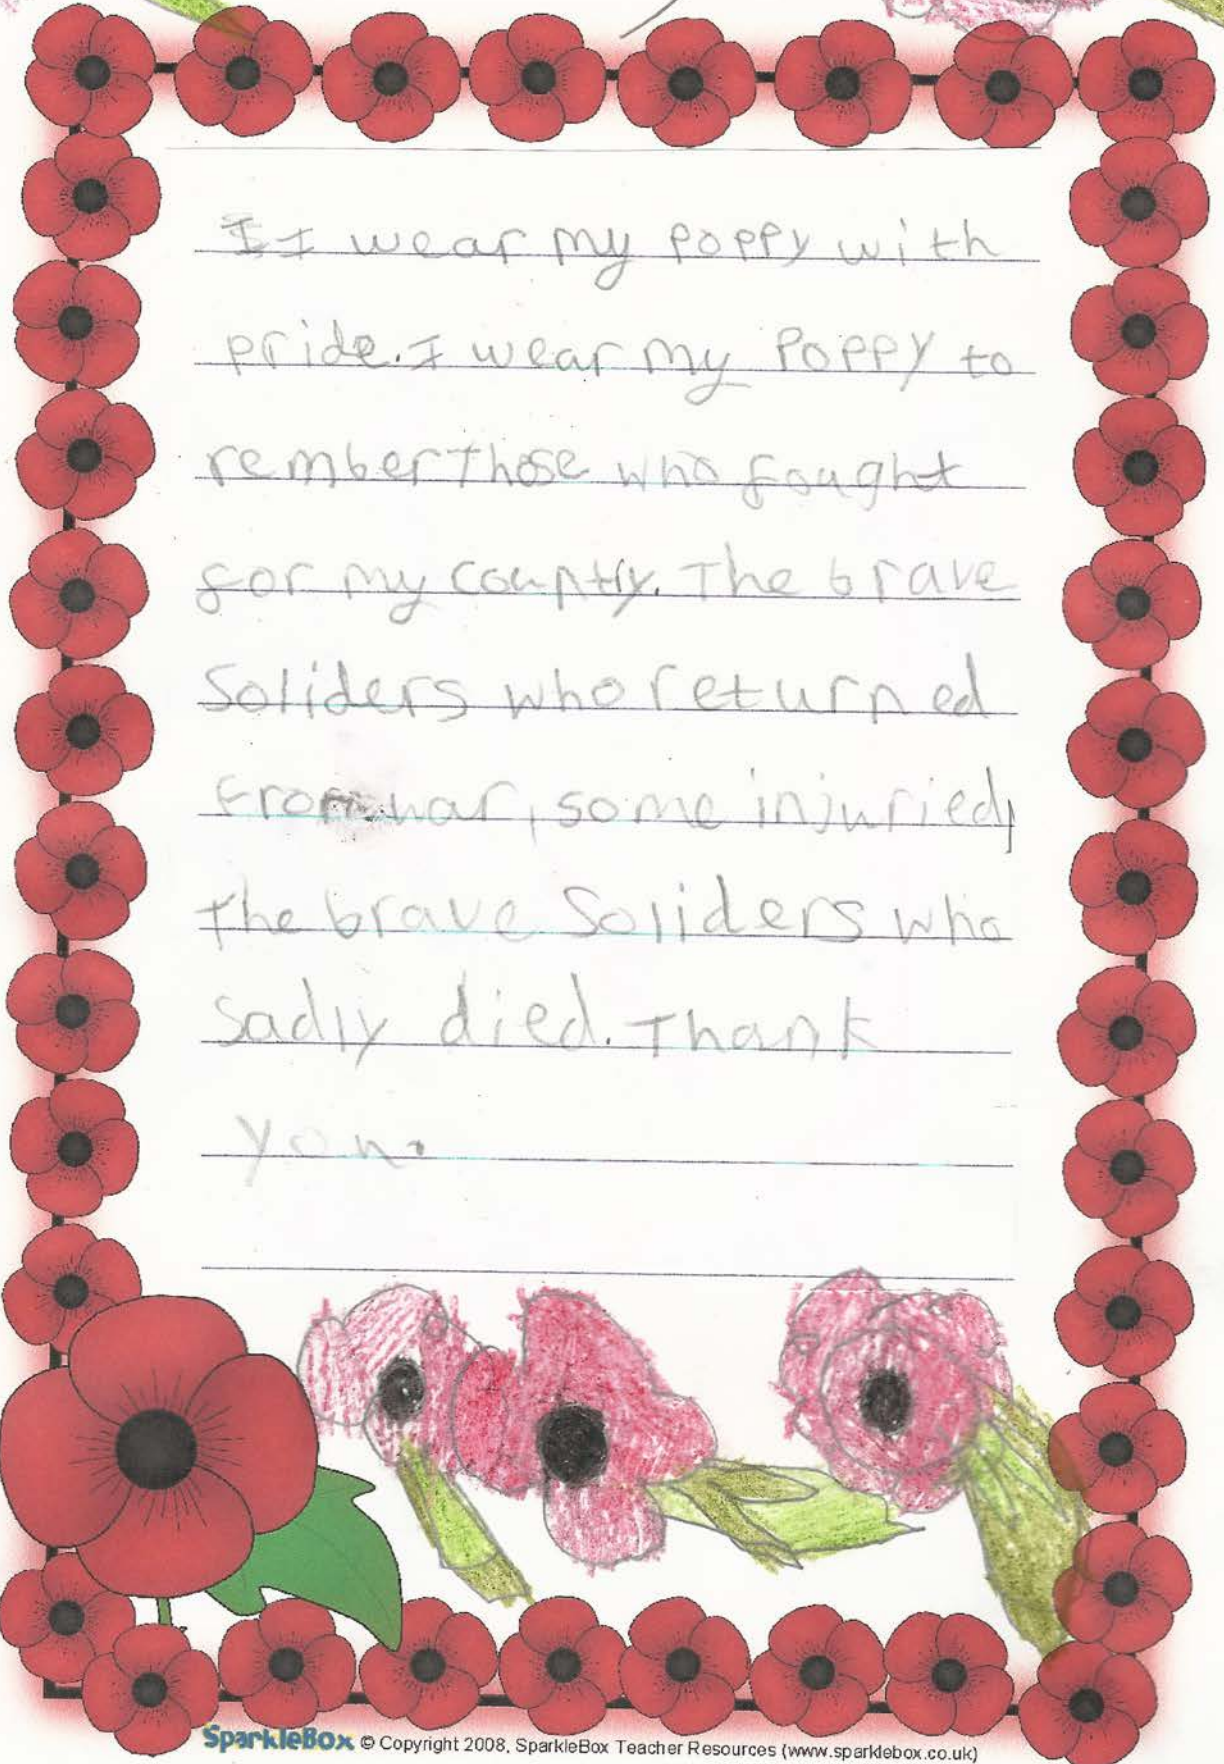 I I wear my poppy with
pride. I wear my Poppy to
rember those who fought
for my country. The brave
Soliders who returned
from war, some injuried,
the brave Soliders who
sadly died. Thank
you.
SparkleBox © Copyright 2008, SparkleBox Teacher Resources (www.sparklebox.co.uk)